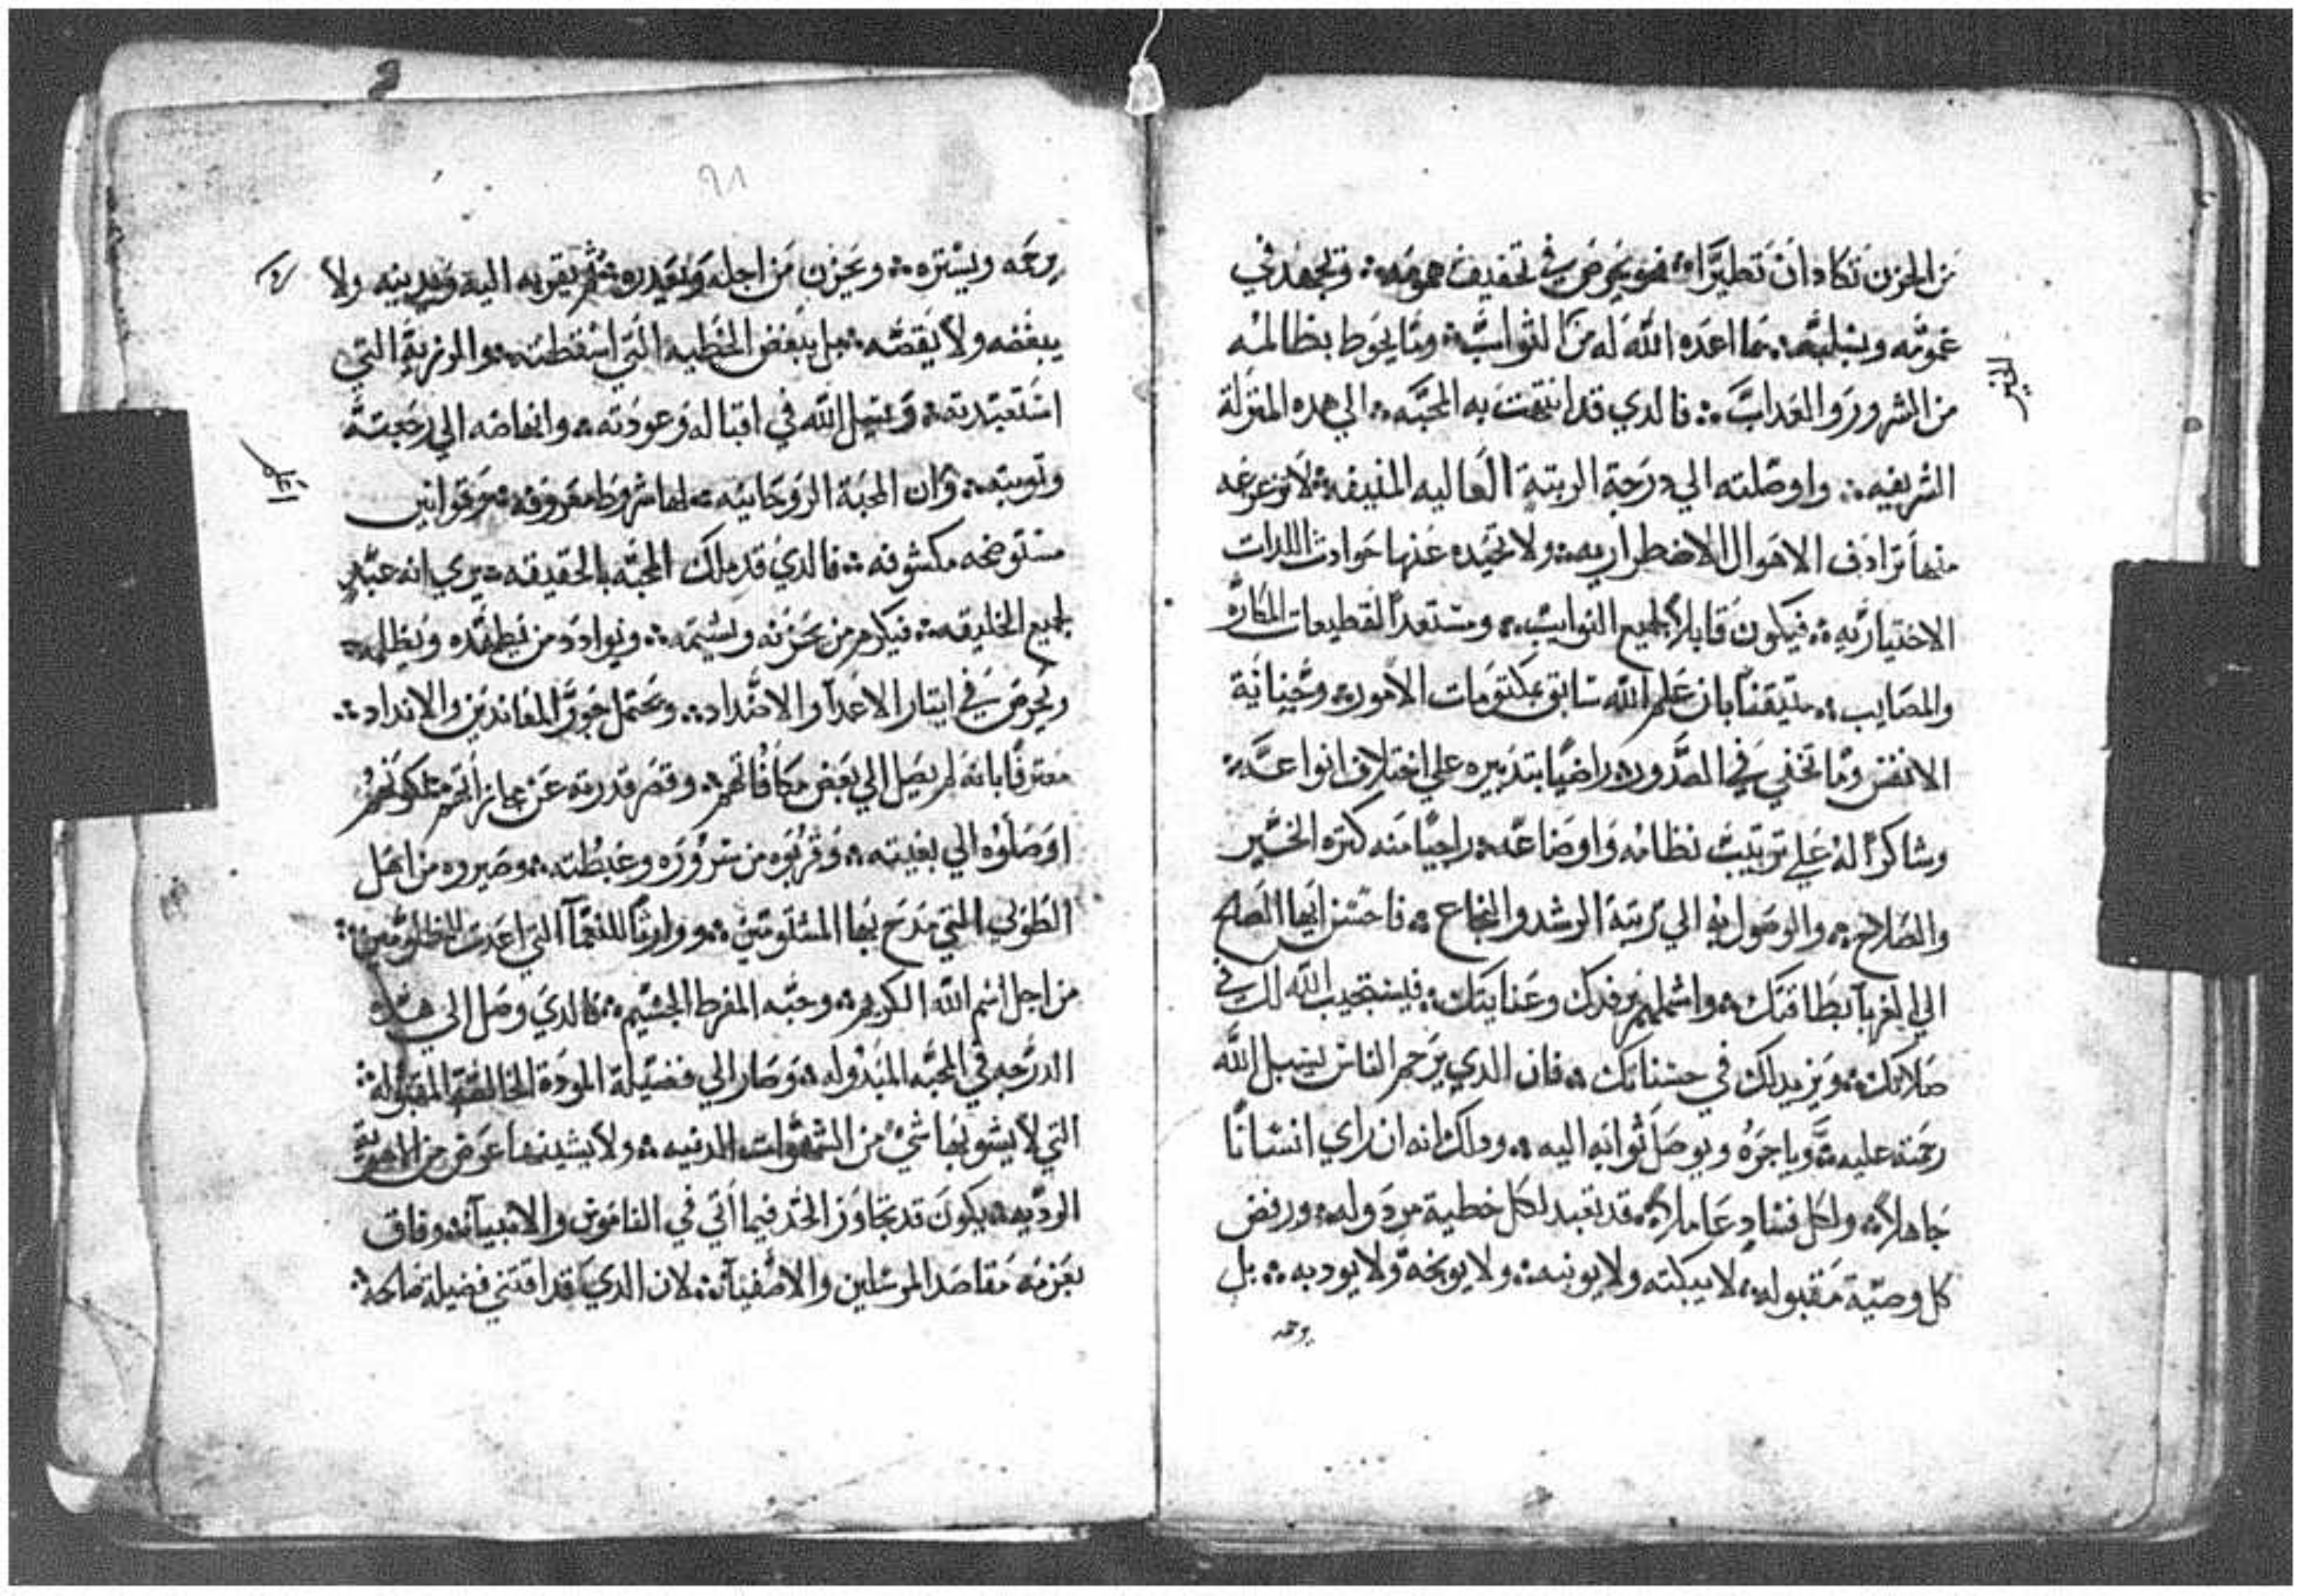 من الحزن تكاد ان تطيرا فهو يحرص في تخفيف همومه ويجهد في
غمومه ويسليه بما اعده الله له من الثواب وما يحوط بظالمه
من الشرور والعداب فالدي قد انتهت به المحبه الي هده المنزلة
الشريفيه واوصلته الي درجة الرتبة العاليه المنيفه لا تزعزعه
منها ترادف الاحوال الاضطراريه ولا تحيده عنها حوادث اللدات
الاختياريه فيكون قابلاً لجميع النوايب ومستعداً لقطيعات المكاره
والمصايب متيقناً بان علم الله سابق بمكتومات الامور وخبائة
الانفس وما تخفي في الصدور راضياً بتدبيره علي اختلاف انواعه
وشاكراً له علي ترتيب نظامه واوضاعه راجياً منه كثره الخير
والصلاح والوصول به الي رتبة الرشد والنجاح فاحسن ايها الصالح
الي الغربآ بطاقتك واشملهم برفدك وعنايتك فيستجيب الله لك في
صلاتك ويزيدك في حسناتك فان الدي يرحم الناس يسبل الله
رحمته عليه وياجره ويوصل ثوابه اليه ودلك انه ان راي انساناً
جاهلاً ولكل فساد عاملاً قد تعبد لكل خطية مردوله ورفض
كل وصيّة مقبوله لا يبكته ولا يونبه ولا يوبخه ولا يودبه بل
يرحمه
٩٨
يرحمه ويستره ويحزن من اجله ويعدره ثم يقربه اليه ويدينه ولا
يبغضه ولا يقصه بل يبغض الخطيه التي اسقطته والرزية التي
استعبدته ويبتهل الله في اقباله وعودته وانهاضه الي رجعته
وتوبته وان المحبة الروحانيه لها شروط معروفه وقوانين
مستوضحه مكشوفه فالدي قد ملك المحبه بالحقيقه يري انه عبد
لجميع الخليقه فيكرم من يحزنه ويشتمه ويوادد من يضطهده ويظلمه
ويحرص في ايثار الاعدآ والاضداد ويحتمل جور المعاندين والانداد
معترفاً بانه لم يصل الي بعض مكافاتهم وقصر قدرته عن مجازاتهم لكونهم
اوصلوه الي بغيته وقربوه من سروره وغبطته وصيروه من اهل
الطوبي التي مدح بها المثلومين ووارثاً للنعمآ التي اعدت للمظلومين
من اجل اسم الله الكريم وحبه المفرط الجسيم فالدي وصل الي هده
الدرجه في المحبه المبدوله وصار الي فضيلة المودة الخالصة المقبوله
التي لا يشوبها شيٌ من الشهوات الدنيه ولا يشينها عرض من الاهوية
الرديه يكون قد تجاوز الحد فيما اتي في الناموس والانبيآ وفاق
بعزمه مقاصد المرسلين والاصفيآ لان الدي قد اقتني فضيلة صالحه